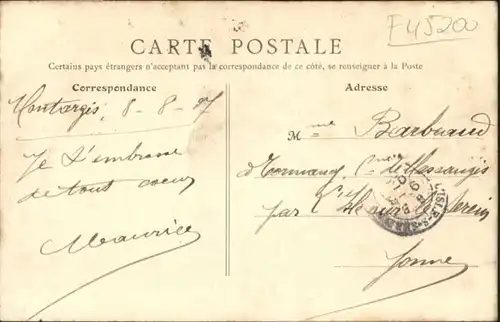 F45200
CARTE POSTALE
Certains pays étrangers n'acceptant pas la correspondance de ce côté, se renseigner à la Poste
Correspondance
Montargis, 8-8-07
Je t'embrasse
de tout coeur
Maurice
Adresse
Mme
d'Ormancy, Cne de Massangis
par L'Isle sur Serein
Yonne